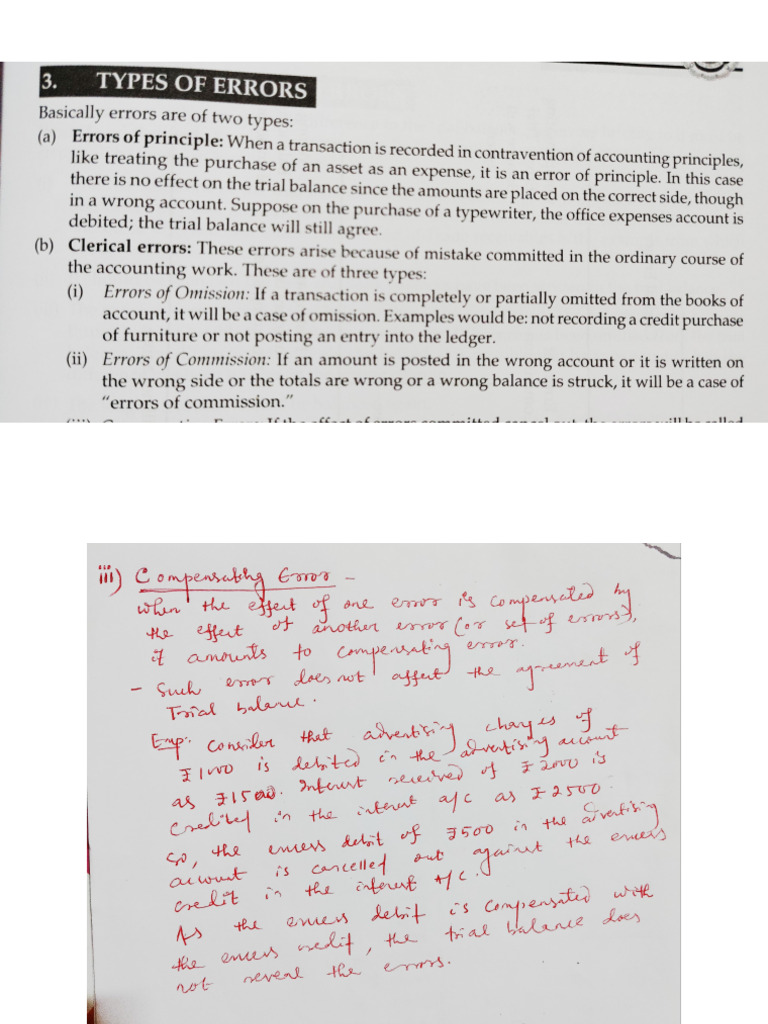 3. TYPES OF ERRORS
Basically errors are of two types:
(a) Errors of principle: When a transaction is recorded in contravention of accounting principles,
like treating the purchase of an asset as an expense, it is an error of principle. In this case
there is no effect on the trial balance since the amounts are placed on the correct side, though
in a wrong account. Suppose on the purchase of a typewriter, the office expenses account is
debited; the trial balance will still agree.
(b) Clerical errors: These errors arise because of mistake committed in the ordinary course of
the accounting work. These are of three types:
(i) Errors of Omission: If a transaction is completely or partially omitted from the books of
account, it will be a case of omission. Examples would be: not recording a credit purchase
of furniture or not posting an entry into the ledger.
(ii) Errors of Commission: If an amount is posted in the wrong account or it is written on
the wrong side or the totals are wrong or a wrong balance is struck, it will be a case of
"errors of commission."
iii) Compensating Error -
When the effect of one error is compensated by
the effect of another error (or set of errors),
it amounts to compensating error.
- Such error does not affect the agreement of
Trial balance.
Exp: Consider that advertising charges of
₹1000 is debited in the advertising account
as ₹1500. Interest received of ₹2000 is
credited in the interest a/c as ₹2500.
So, the excess debit of ₹500 in the advertising
account is cancelled out against the excess
credit in the interest A/C.
As the excess debit is compensated with
the excess credit, the trial balance does
not reveal the errors.